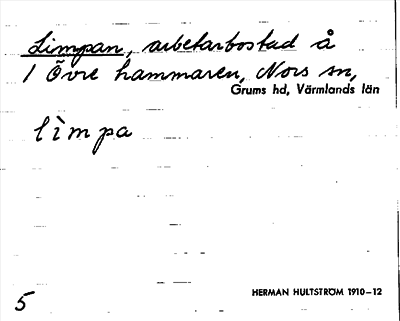 Limpan, arbetarbostad å
1 Övre hammaren, Nors sn,
Grums hd, Värmlands län
lìmpa
HERMAN HULTSTRÖM 1910–12
5